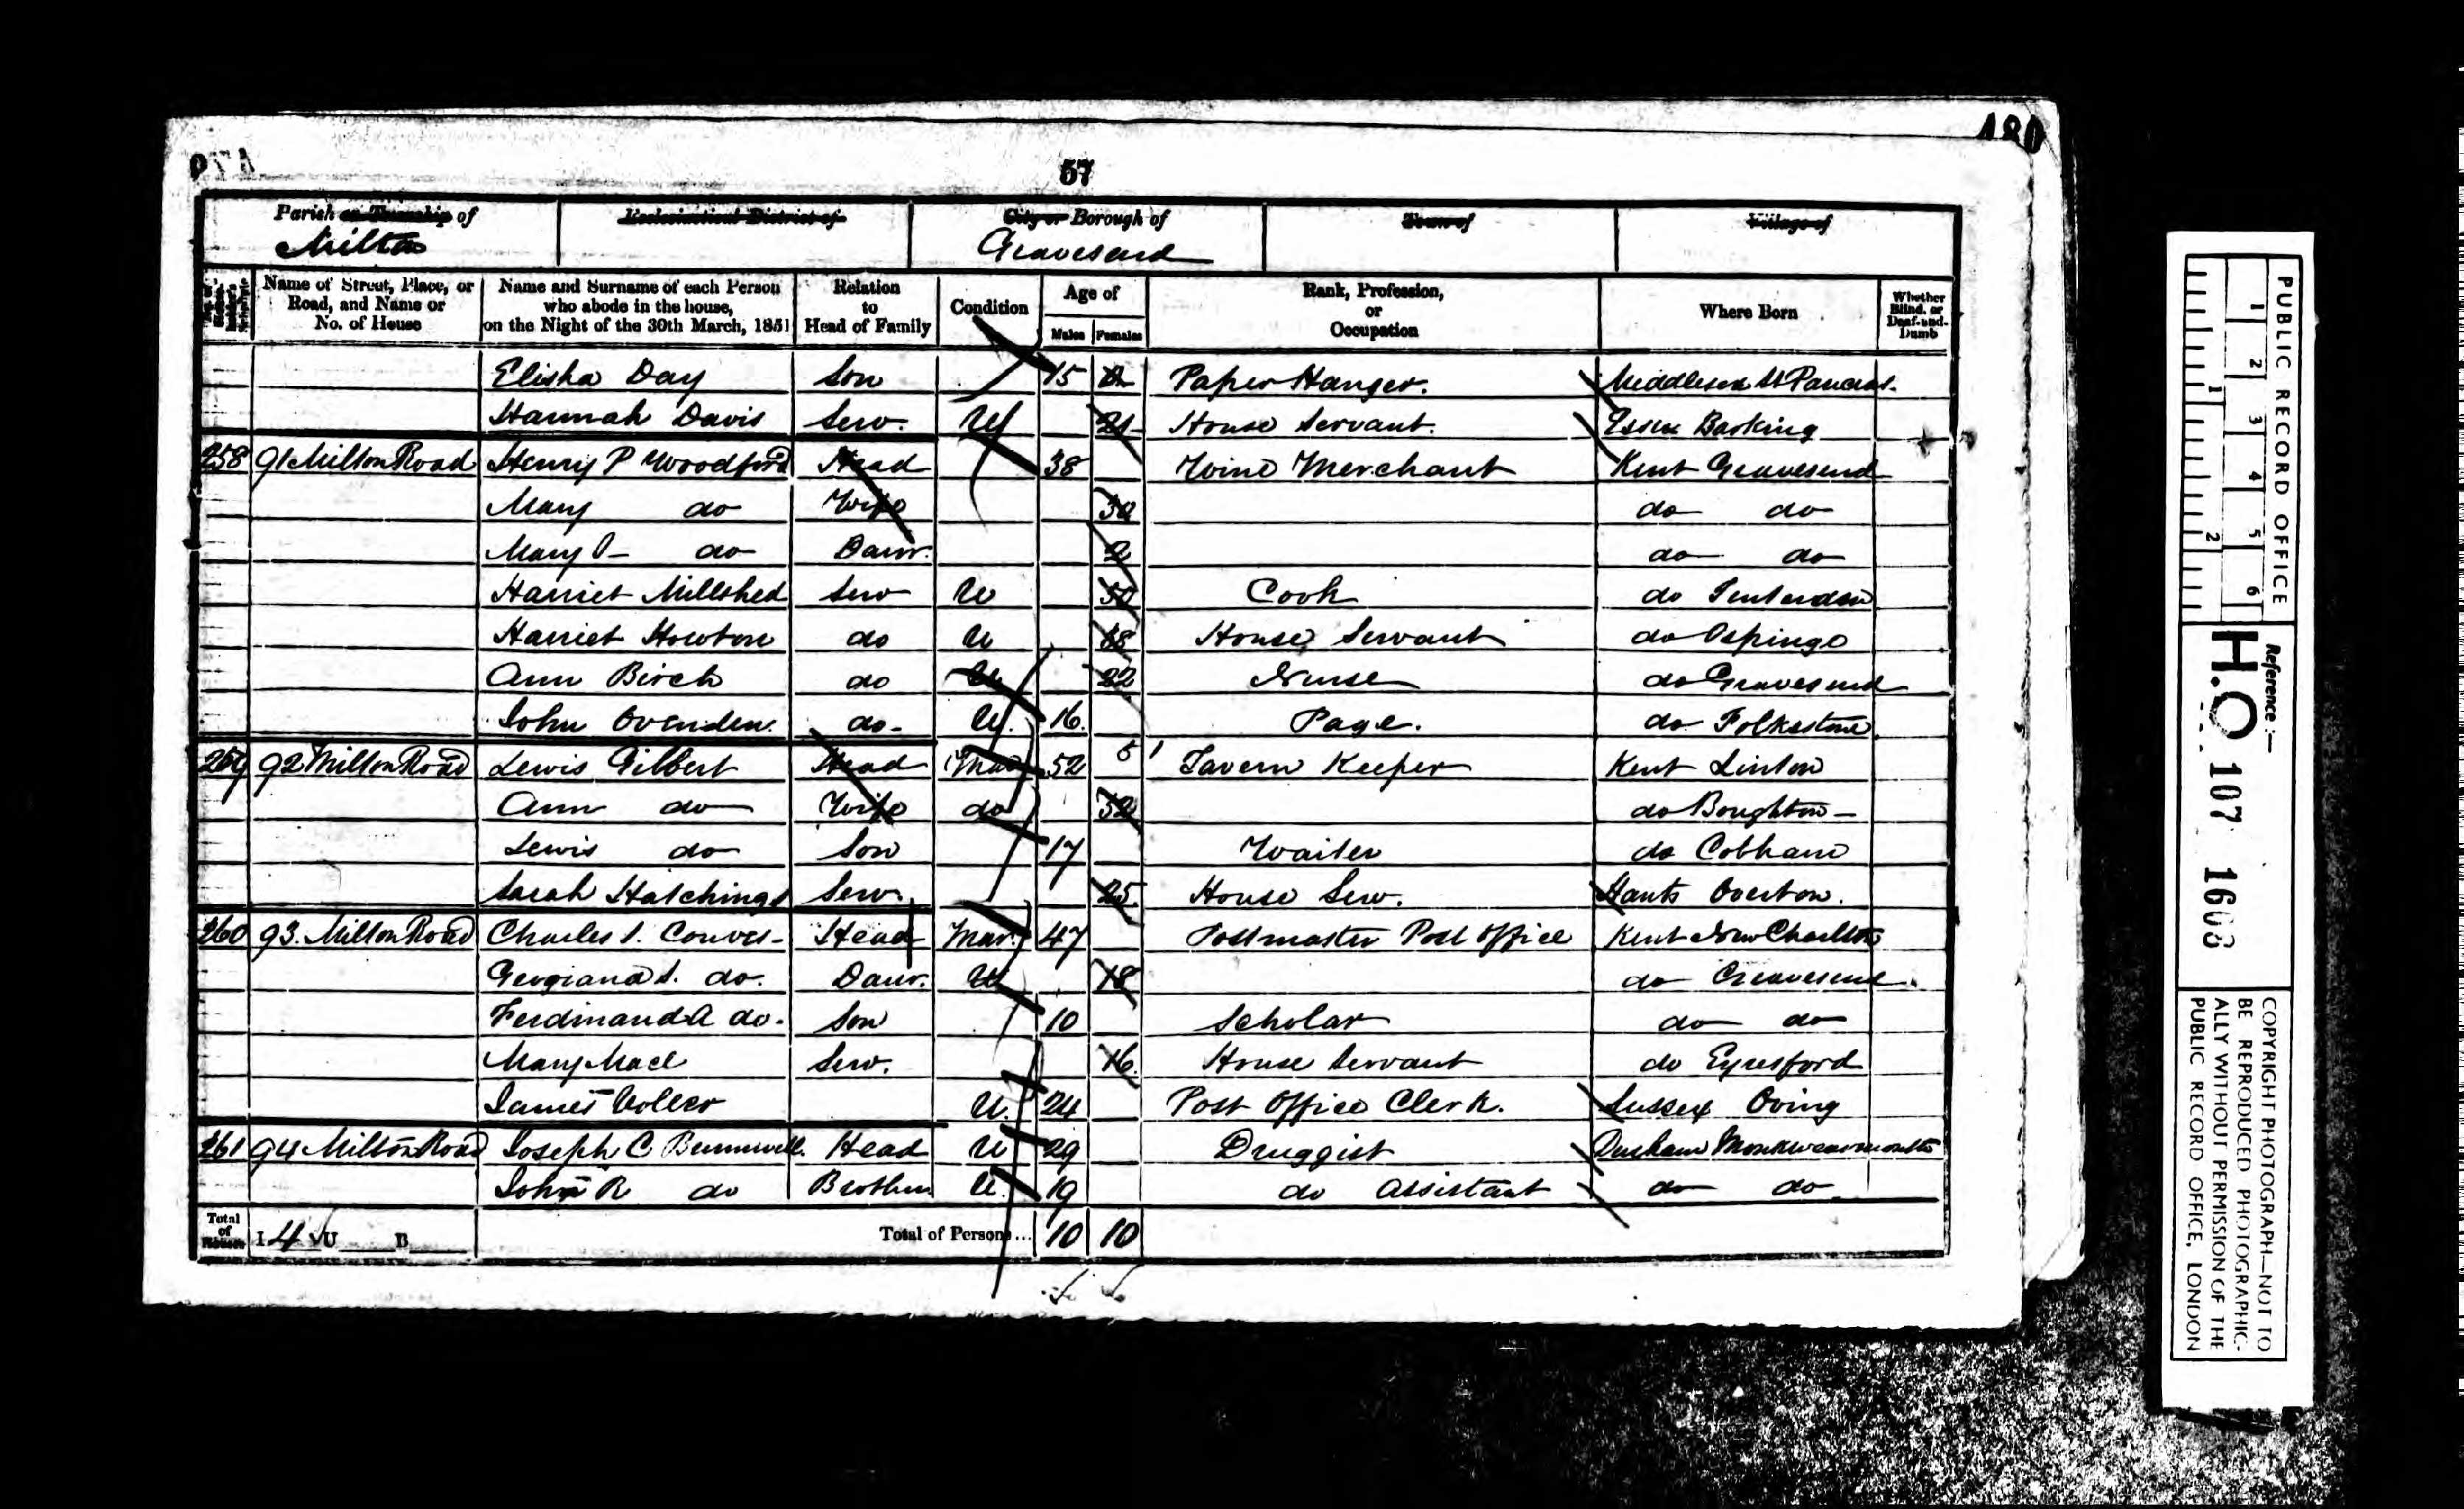 480
57
Parish or Township of Ecclesiastical District of City or Borough of Town of Village of
Milton Gravesend
Name of Street, Place, or Road, and Name or No. of House
Name and Surname of each Person who abode in the house, on the Night of the 30th March, 1851
Relation to Head of Family
Condition
Age of
Males Females
Rank, Profession, or Occupation
Where Born
Whether Blind, or Deaf-and-Dumb
Elisha Day Son 15 Paper Hanger. Middlesex St Pancras.
Hannah Davis Serv. U 21 House Servant. Essex Barking
258 91 Milton Road Henry P Woodford Head 38 Wine Merchant Kent Gravesend
Mary do Wife 30 do do
Mary do Daur. 2 do do
Harriet Millshed Serv U 50 Cook do Tenterden
Harriet Howton do U 38 House Servant do Ospinge
Ann Birch do U 22 Nurse do Gravesend
John Ovenden. do- U. 16. Page. do Folkestone
259 92 Milton Road Lewis Gilbert Head Mar 52 Tavern Keeper Kent Linton
Ann do Wife do 52 do Boughton-
Lewis do Son 17 Waiter do Cobham
Sarah Hatchings Serv. 25 House Serv. Hants Overton.
260 93. Milton Road Charles Head Mar. 47 Postmaster Post Office Kent New Charlton
Georgiana S. do. Daur. U 18 do Gravesend.
Ferdinand A do. Son 10 Scholar do do
Mary Mace Serv. 16. House Servant do Eynesford
James Voller U. 24 Post Office Clerk. Sussex Oving
261 94 Milton Road Joseph C Head U 29 Druggist Durham Monkwearmouth
John R do Brother U 19 do Assistant do do
Total of Houses I 4 U B Total of Persons... 10 10
PUBLIC RECORD OFFICE
1 2 3 4 5 6
1 2
Reference:-
H.O 107 1608
COPYRIGHT PHOTOGRAPH-NOT TO
BE REPRODUCED PHOTOGRAPHIC-
ALLY WITHOUT PERMISSION OF THE
PUBLIC RECORD OFFICE, LONDON